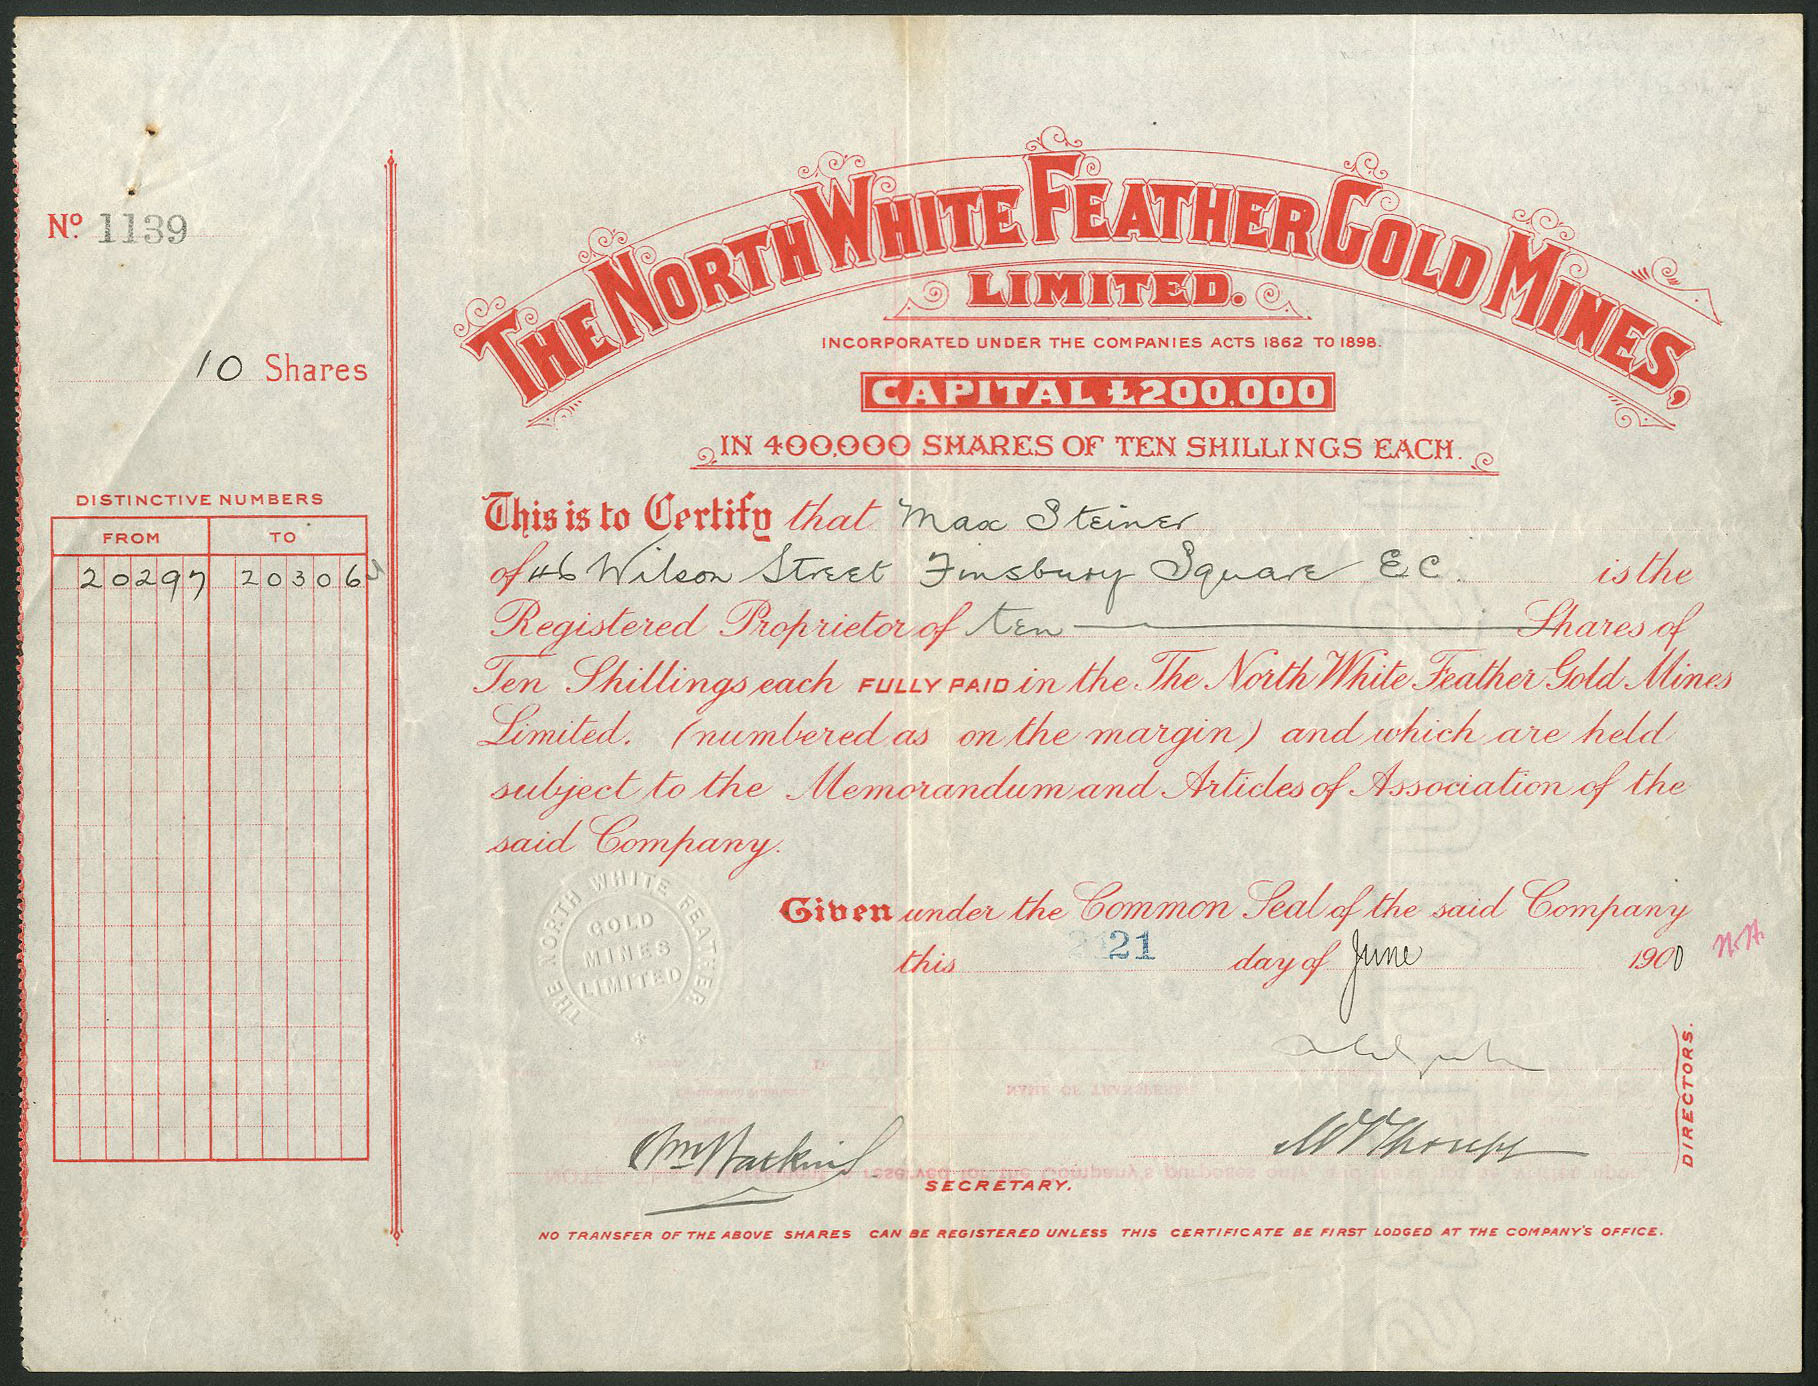 No. 1139
10 Shares
DISTINCTIVE NUMBERS
FROM TO
20297 20306
THE NORTH WHITE FEATHER GOLD MINES,
LIMITED.
INCORPORATED UNDER THE COMPANIES ACTS 1862 TO 1898.
CAPITAL £200,000
IN 400,000 SHARES OF TEN SHILLINGS EACH.
This is to Certify that Max Steiner
of 46 Wilson Street Finsbury Square E C. is the
Registered Proprietor of ten Shares of
Ten Shillings each FULLY PAID in the The North White Feather Gold Mines
Limited. (numbered as on the margin) and which are held
subject to the Memorandum and Articles of Association of the
said Company.
Given under the Common Seal of the said Company
this 21 day of June 1900
THE NORTH WHITE FEATHER
GOLD
MINES
LIMITED
DIRECTORS.
SECRETARY.
NO TRANSFER OF THE ABOVE SHARES CAN BE REGISTERED UNLESS THIS CERTIFICATE BE FIRST LODGED AT THE COMPANY'S OFFICE.